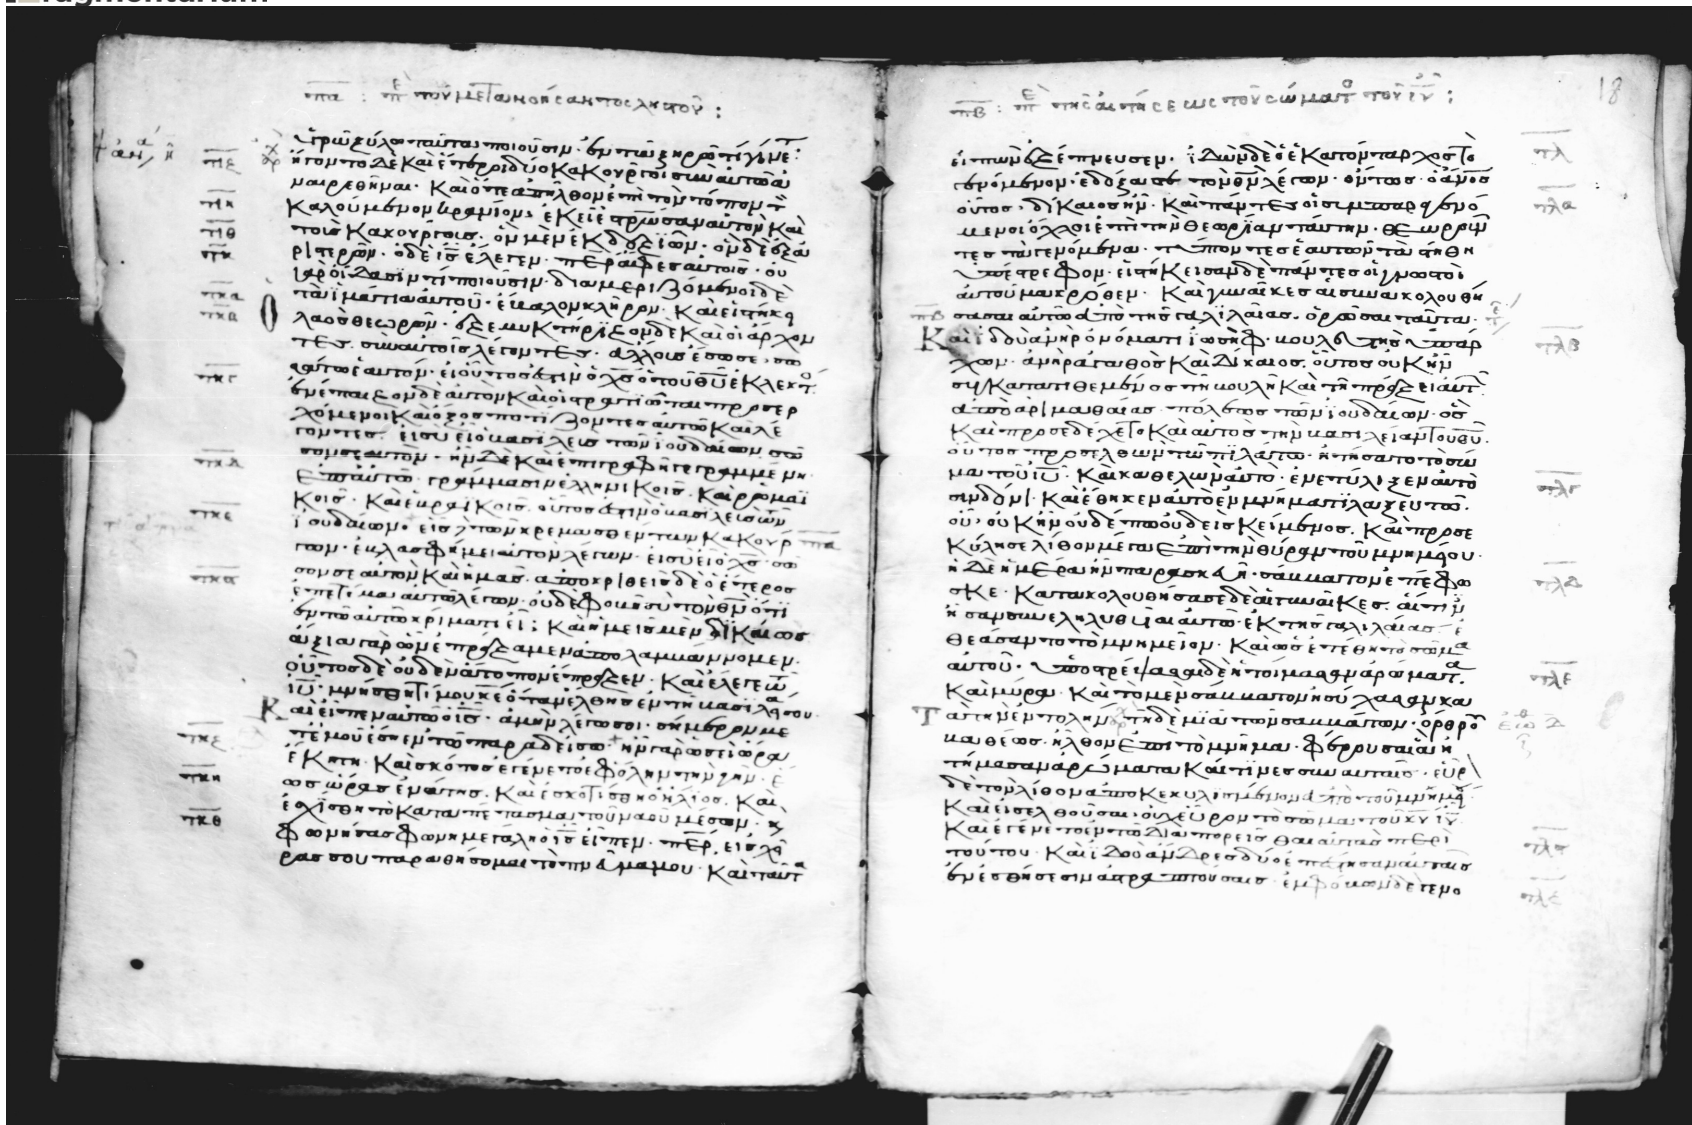 πα : πε τοῦ μετανοήσαντος ληστοῦ :
ὑγρῶ ξύλω ταῦτα ποιοῦσιν· ἐν τῶ ξηρῶ τί γένηται·
ἤγοντο δὲ καὶ ἕτεροι δύο κακοῦργοι σὺν αὐτῶ ἀ
ναιρεθῆναι· καὶ ὅτε ἀπῆλθον ἐπὶ τὸν τόπον τὸν
καλούμενον κρανίον, ἐκεῖ ἐσταύρωσαν αὐτὸν καὶ
τοὺς κακούργους· ὃν μὲν ἐκ δεξιῶν· ὃν δὲ ἐξ ἀ
ριστερῶν· ὁ δὲ ι̅ς̅ ἔλεγεν· π̅ε̅ρ̅ ἄφες αὐτοῖς· οὐ
γὰρ οἴδασιν τί ποιοῦσιν· διαμεριζόμενοι δὲ
τὰ ἱμάτια αὐτοῦ· ἔβαλον κλῆρον· καὶ εἱστήκει ὁ
λαὸς θεωρῶν· ἐξεμυκτήριζον δὲ καὶ οἱ ἄρχον
τες· σὺν αὐτοῖς λέγοντες· ἄλλους ἔσωσε, σω
σάτω ἑαυτόν· εἰ οὗτός ἐστιν ὁ χ̅ς̅ ὁ τοῦ θ̅υ̅ ἐκλεκτ
ἐνέπαιζον δὲ αὐτὸν καὶ οἱ στρατιῶται προσερ
χόμενοι καὶ ὄξος ποτίζοντες αὐτῶ καὶ λέ
γοντες· εἰ σὺ εἶ ὁ βασιλεὺς τῶν ἰουδαίων σῶ
σον σεαυτόν· ἦν δὲ καὶ ἐπιγραφὴ γεγραμμένη·
ἐπ' αὐτῶ· γράμμασιν ἑλληνικοῖς· καὶ ῥωμαϊ
κοῖς· καὶ ἑβραϊκοῖς· οὗτός ἐστιν ὁ βασιλεὺς τῶν
ἰουδαίων· εἷς δὲ τῶν κρεμασθέντων κακούρ
γων· ἐβλασφήμει αὐτὸν λέγων· εἰ σὺ εἶ ὁ χ̅ς̅· σῶ
σον σεαυτὸν καὶ ἡμᾶς· ἀποκριθεὶς δὲ ὁ ἕτερος
ἐπετίμα αὐτῶ λέγων· οὐδὲ φοβῆ σὺ τὸν θ̅ν̅ ὅτι
ἐν τῶ αὐτῶ κρίματι εἶ; καὶ ἡμεῖς μὲν δικαίως
ἄξια γὰρ ὧν ἐπράξαμεν ἀπολαμβάνομεν·
οὗτος δὲ οὐδὲν ἄτοπον ἔπραξεν· καὶ ἔλεγε τῶ
ι̅υ̅· μνήσθητί μου κ̅ε̅ ὅταν ἔλθης ἐν τῆ βασιλεία σου·
καὶ εἶπεν αὐτῶ ὁ ι̅ς̅· ἀμὴν λέγω σοι· σήμερον με
τ' ἐμοῦ ἔση ἐν τῶ παραδείσω· ἦν γὰρ ὡσεὶ ὥρα
ἕκτη· καὶ σκότος ἐγένετο ἐφ' ὅλην τὴν γῆν· ἕ
ως ὥρας ἐννάτης· καὶ ἐσκοτίσθη ὁ ἥλιος· καὶ
ἐσχίσθη τὸ καταπέτασμα τοῦ ναοῦ μέσον· κ
φωνήσας φωνῆ μεγάλη ὁ ι̅ς̅ εἶπεν· π̅ε̅ρ̅, εἰς χεῖ
ρας σου παραθήσομαι τὸ π̅ν̅α̅ μου· καὶ ταῦτα
πβ : πε τῆς αἰτήσεως τοῦ σώματος τοῦ ι̅υ̅ :
18
εἰπὼν ἐξέπνευσεν· ἰδὼν δὲ ὁ ἑκατόνταρχος τὸ
γενόμενον· ἐδόξασε τὸν θ̅ν̅ λέγων· ὄντως ὁ ἀ̅ν̅ο̅ς̅
οὗτος, δίκαιος ἦν· καὶ πάντες οἱ συμπαραγενό
μενοι ὄχλοι ἐπὶ τὴν θεωρίαν ταύτην· θεωροῦν
τες τὰ γενόμενα· τύπτοντες ἑαυτῶν τὰ στήθη
ὑπέστρεφον· εἱστήκεισαν δὲ πάντες οἱ γνωστοὶ
αὐτοῦ μακρόθεν· καὶ γυναῖκες αἱ συνακολουθή
σασαι αὐτῶ ἀπὸ τῆς γαλιλαίας· ὁρῶσαι ταῦτα·
καὶ ἰδοὺ ἀνὴρ ὀνόματι ἰωσὴφ· βουλευτὴς ὑπάρ
χων· ἀνὴρ ἀγαθὸς καὶ δίκαιος· οὗτος οὐκ ἦν
συγκατατιθέμενος τῆ βουλῆ καὶ τῆ πράξει αὐτ
ἀπὸ ἀριμαθαίας· πόλεως τῶν ἰουδαίων· ὃς
καὶ προσεδέχετο καὶ αὐτὸς τὴν βασιλείαν τοῦ θ̅υ̅·
οὗτος προσελθὼν τῶ πιλάτω· ἠτήσατο τὸ σῶ
μα τοῦ ι̅υ̅· καὶ καθελὼν αὐτὸ· ἐνετύλιξεν αὐτὸ
σινδόνι· καὶ ἔθηκεν αὐτὸ ἐν μνήματι λαξευτῶ·
οὗ, οὐκ ἦν οὐδέπω οὐδεὶς κείμενος· καὶ προσε
κύλησε λίθον μέγαν ἐπὶ τὴν θύραν τοῦ μνημείου·
ἡ δὲ ἡμέρα ἦν παρασκευή· σάββατον ἐπέφω
σκε· κατακολουθήσασαι δὲ αἱ γυναῖκες· αἵτινες
ἦσαν συνεληλυθυῖαι αὐτῶ· ἐκ τῆς γαλιλαίας· ἐ
θεάσαντο τὸ μνημεῖον· καὶ ὡς ἐτέθη τὸ σῶμα
αὐτοῦ· ὑποστρέψασαι δὲ ἡτοίμασαν ἀρώματα
καὶ μύρα· καὶ τὸ μὲν σάββατον ἡσύχασαν κα
τὰ τὴν ἐντολήν τῆ δὲ μιᾶ τῶν σαββάτων· ὄρθρου
βαθέως· ἦλθον ἐπὶ τὸ μνῆμα· φέρουσαι ἃ ἡ
τοίμασαν ἀρώματα καί τινες σὺν αὐταῖς· εὗρον
δὲ τὸν λίθον ἀποκεκυλισμένον ἀπὸ τοῦ μνημεί
καὶ εἰσελθοῦσαι, οὐχ εὗρον τὸ σῶμα τοῦ κ̅υ̅ ι̅υ̅·
καὶ ἐγένετο ἐν τῶ διαπορεῖσθαι αὐτὰς περὶ
τούτου· καὶ ἰδοὺ ἄνδρες δύο ἐπέστησαν αὐταῖς
ἐν ἐσθήσεσιν ἀστραπτούσαις· ἐμφόβων δὲ γενο